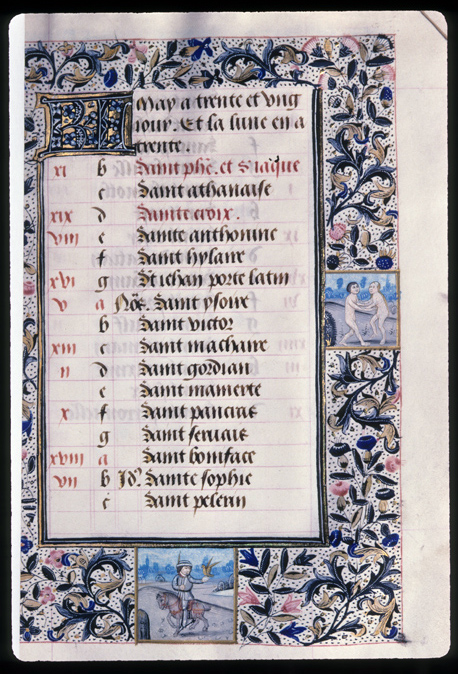 KL May a trente et ung
iour. Et la lune en a
trente
xi b Saint phe. et s iaque
c Saint athanaise
xix d Sainte croix.
viii e Sainte anthonine
f Saint hylaire
xvi g St iehan porte latin
v a Nōe. Saint ysoire
b Saint victor
xiii c Saint machaire
ii d Saint gordian
e Saint mamerte
x f Saint pancrae
g Saint servais
xviii a Saint boniface
vii b Id9 Sainte sophie
c Saint pelerin